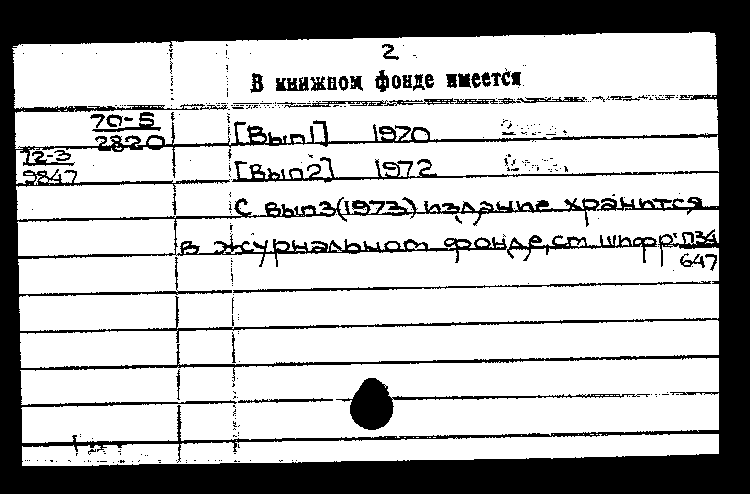 2
В книжном фонде имеется
70-5
2820 [Вып1] 1970
72-3
9847 [Вып2] 1972
С вып3(1973) издание хранится
в журнальном фонде, ст. шифр: П34
647